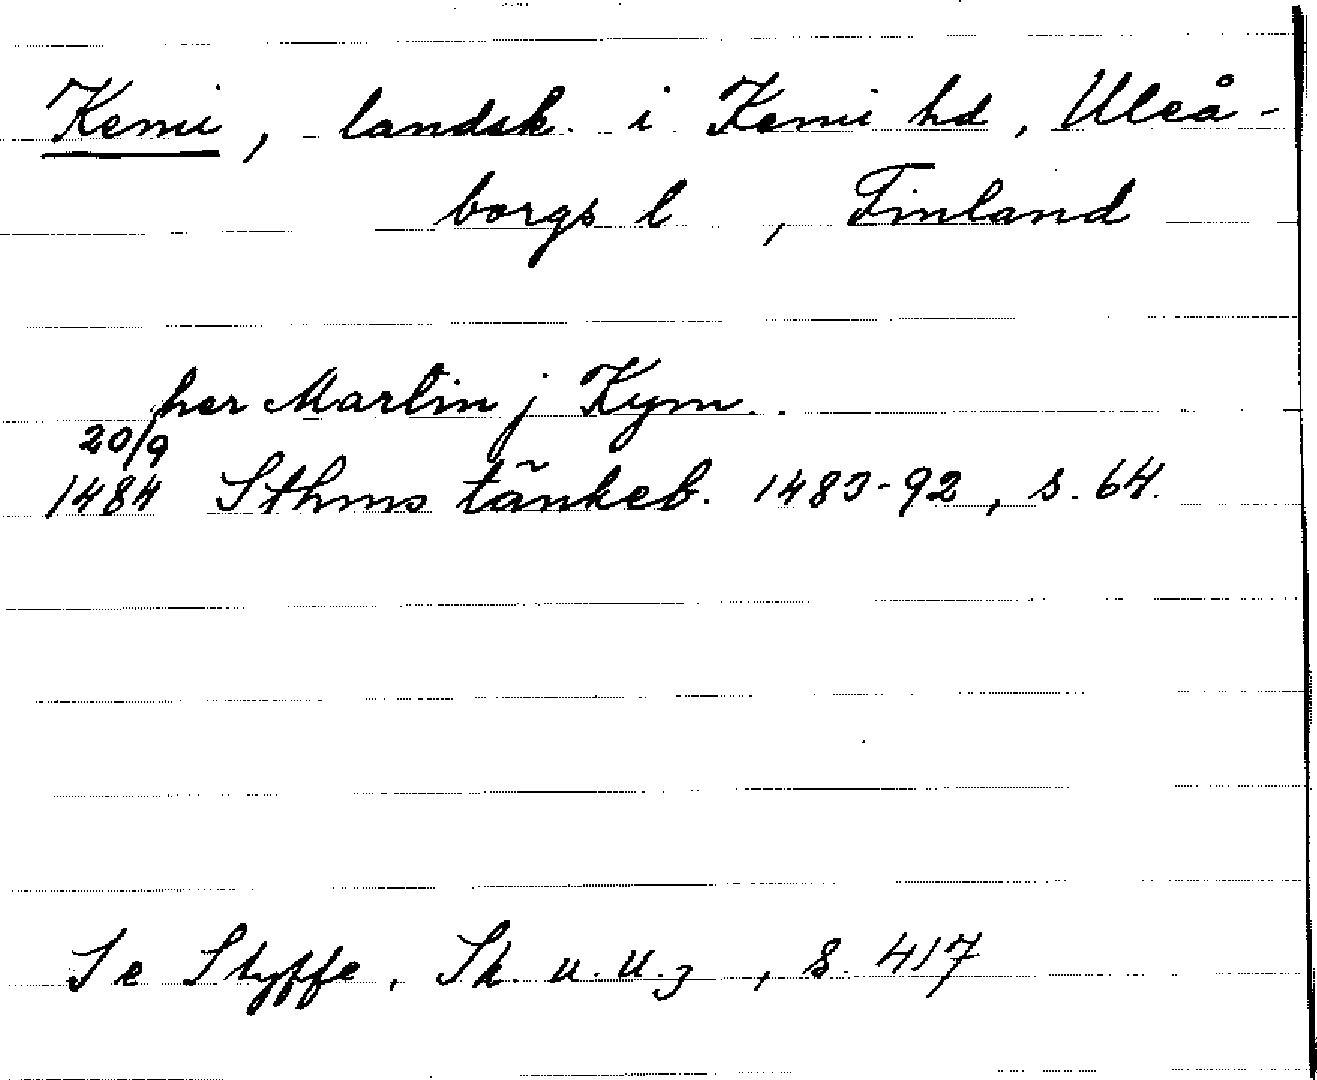 Kemi, landsk. i Kemi hd, Uleå-
borgs l, Finland
her Martin j Kym.
20/9
1484 Sthms tänkeb. 1483-92, s. 64.
Se Styffe, Sk. u. u. 3, s. 417